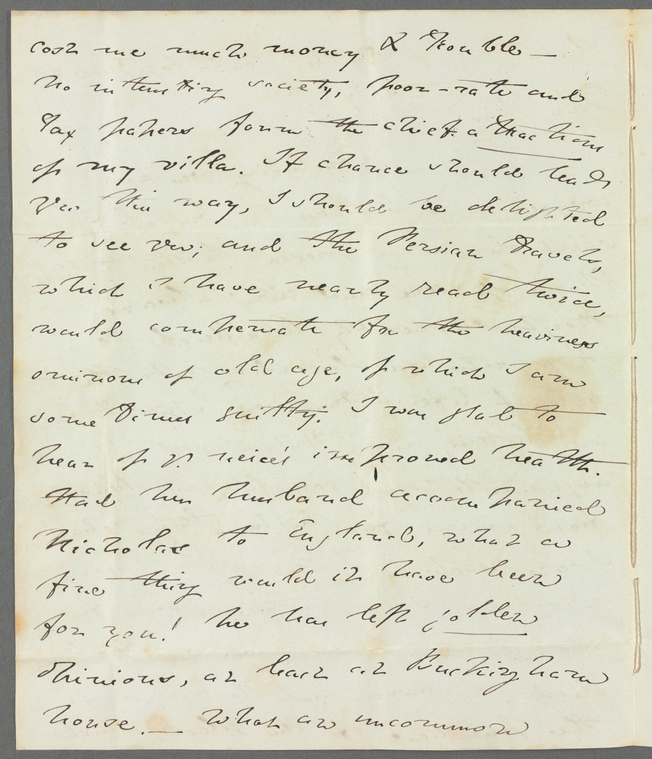 cost me much money & trouble —
No interesting society, poor-rate and
Tax papers form the chief attractions
of my villa. If chance should lead
you this way, I should be delighted
to see you; and the Persian Travels,
which I have nearly read twice,
would compensate for the heaviness
ominous of old age, of which I am
some times guilty. I was glad to
hear of yr. niece's improved health.
Had her husband accompanied
Nicholas to England, what a
fine thing would it have been
for you! he has left golden
opinions, at least at Buckingham
house. — What an uncommon